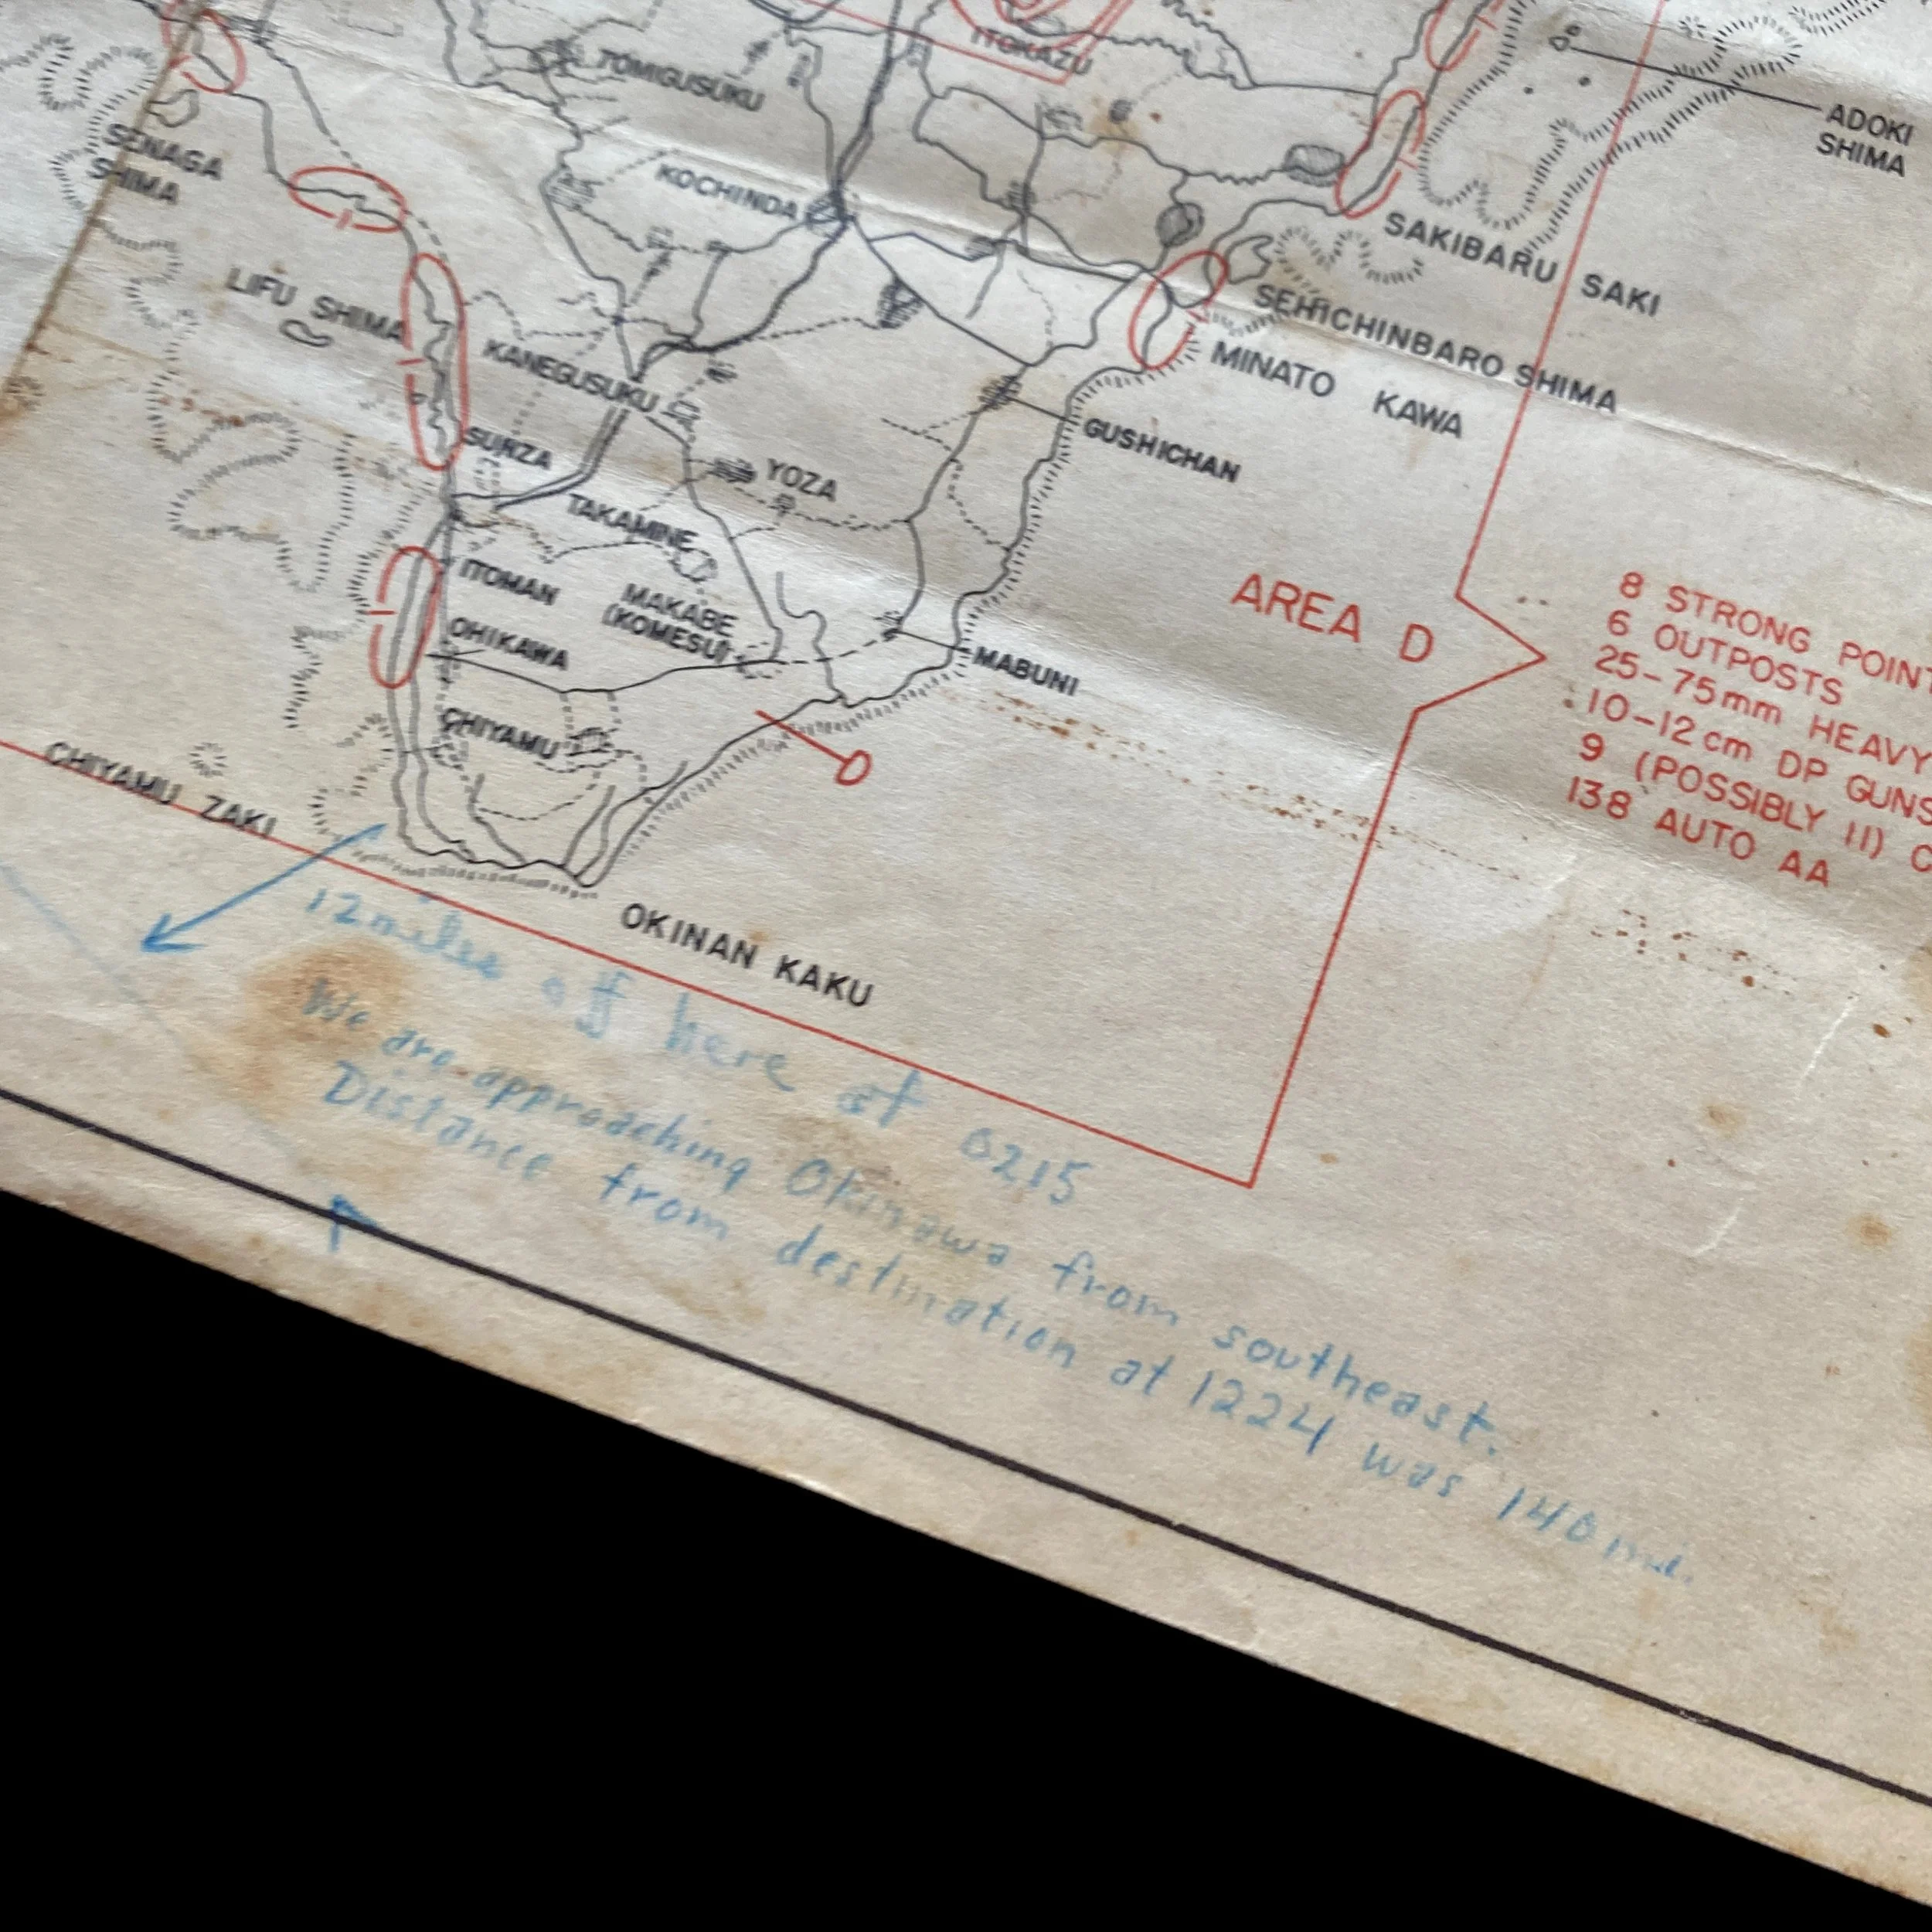 ITOKAZU
TOMIGUSUKU
ADOKI
SHIMA
SENAGA
SHIMA
KOCHINDA
SAKIBARU SAKI
LIFU SHIMA
SEHICHINBARO SHIMA
KANEGUSUKU
MINATO KAWA
SUNZA
GUSHICHAN
YOZA
TAKAMINE
ITOMAN
MAKABE
(KOMESU)
OHIKAWA
MABUNI
AREA D
8 STRONG POINT
6 OUTPOSTS
25-75mm HEAVY
10-12cm DP GUNS
9 (POSSIBLY 11) C
138 AUTO AA
CHIYAMU
D
CHIYAMU ZAKI
OKINAN KAKU
12 miles off here at 0215
We are approaching Okinawa from southeast.
Distance from destination at 1224 was 140 mi.